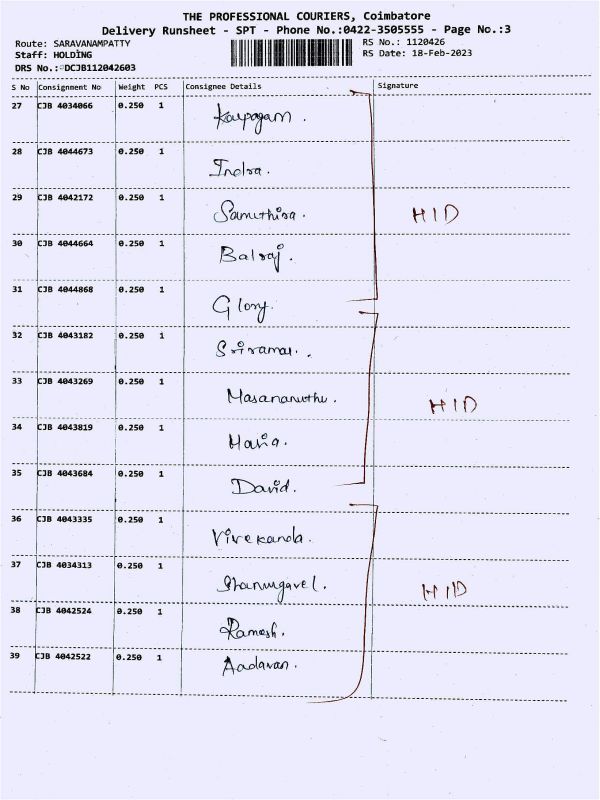 THE PROFESSIONAL COURIERS, Coimbatore
Delivery Runsheet - SPT - Phone No.:0422-3505555 - Page No.:3
Route: SARAVANAMPATTY RS No.: 1120426
Staff: HOLDING RS Date: 18-Feb-2023
DRS No.: DCJB112042603
S No Consignment No Weight PCS Consignee Details Signature
27 CJB 4034066 0.250 1 Karpagam.
28 CJB 4044673 0.250 1 Indra.
29 CJB 4042172 0.250 1 Samuthira. HID
30 CJB 4044664 0.250 1 Balraj.
31 CJB 4044868 0.250 1 Glory.
32 CJB 4043182 0.250 1 Sriramar.
33 CJB 4043269 0.250 1 Masanamuthu. HID
34 CJB 4043819 0.250 1 Maria.
35 CJB 4043684 0.250 1 David.
36 CJB 4043335 0.250 1 Vivekanda.
37 CJB 4034313 0.250 1 Shanmugavel. HID
38 CJB 4042524 0.250 1 Ramesh.
39 CJB 4042522 0.250 1 Aadavan.